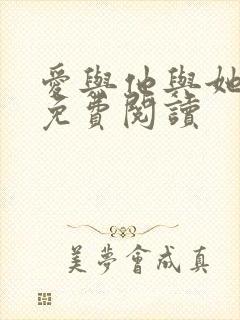 愛與他與她
免費閱讀
美夢會成真